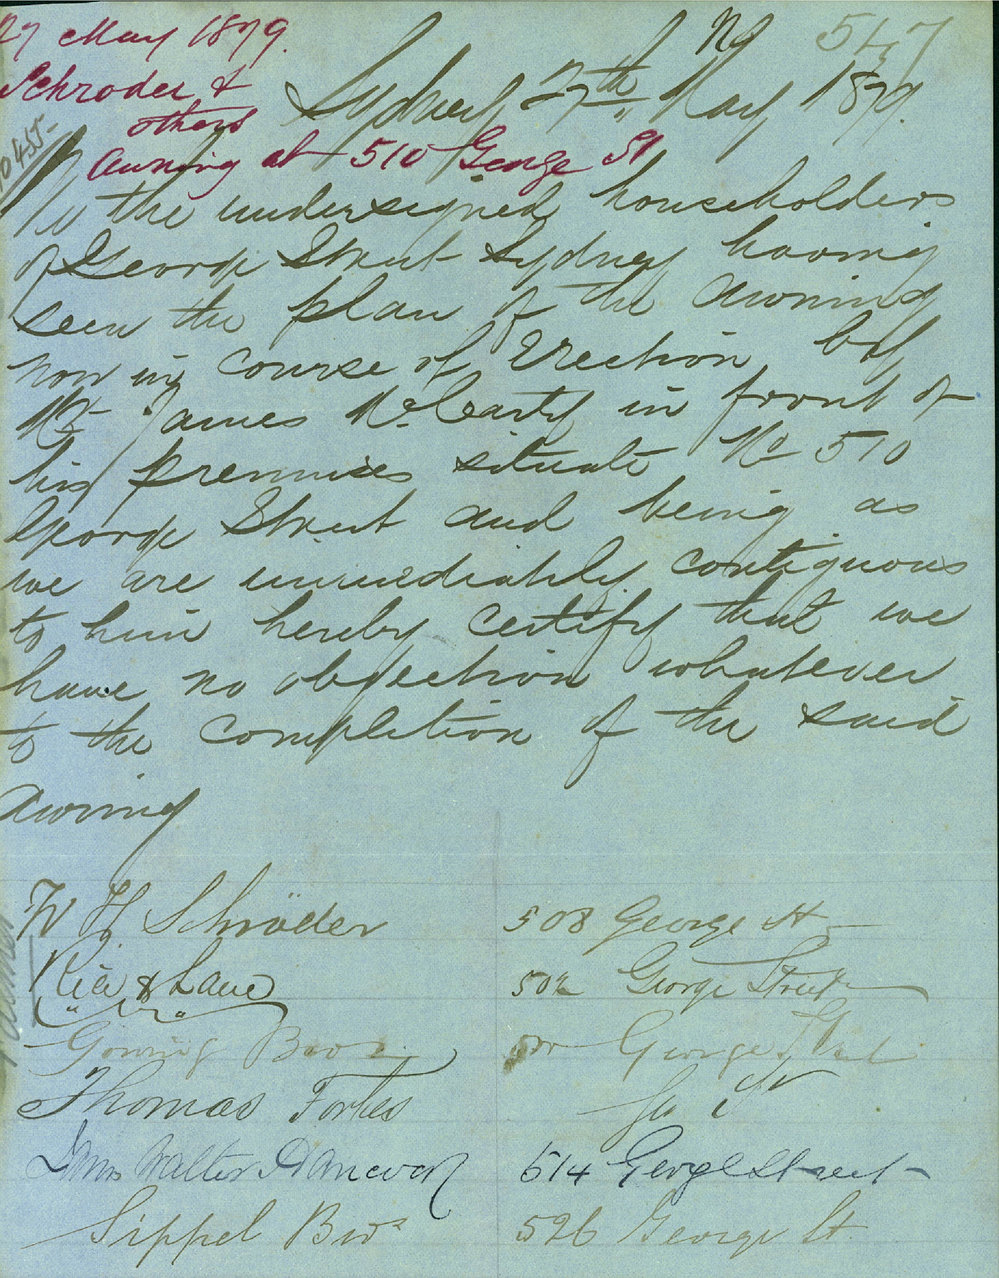 27 May 1879.
Schroder &
others
awning at 510 George St
547
Sydney 27th May 1879.
10455
We the undersigned householders
of George Street Sydney having
seen the plan of the awning
now in course of Erection by
Mr James McCarty in front of
his premises situate No 510
George Street and being as
we are immediately contiguous
to him hereby certify that we
have no objection whatever
to the completion of the said
awning
W H Schröder 508 George St
Rice & Lane 506 George Street
Gowing Bros 500 George Street
Thomas Forbes Geo St
Walter 514 George Street
Sippel Bros 526 George St